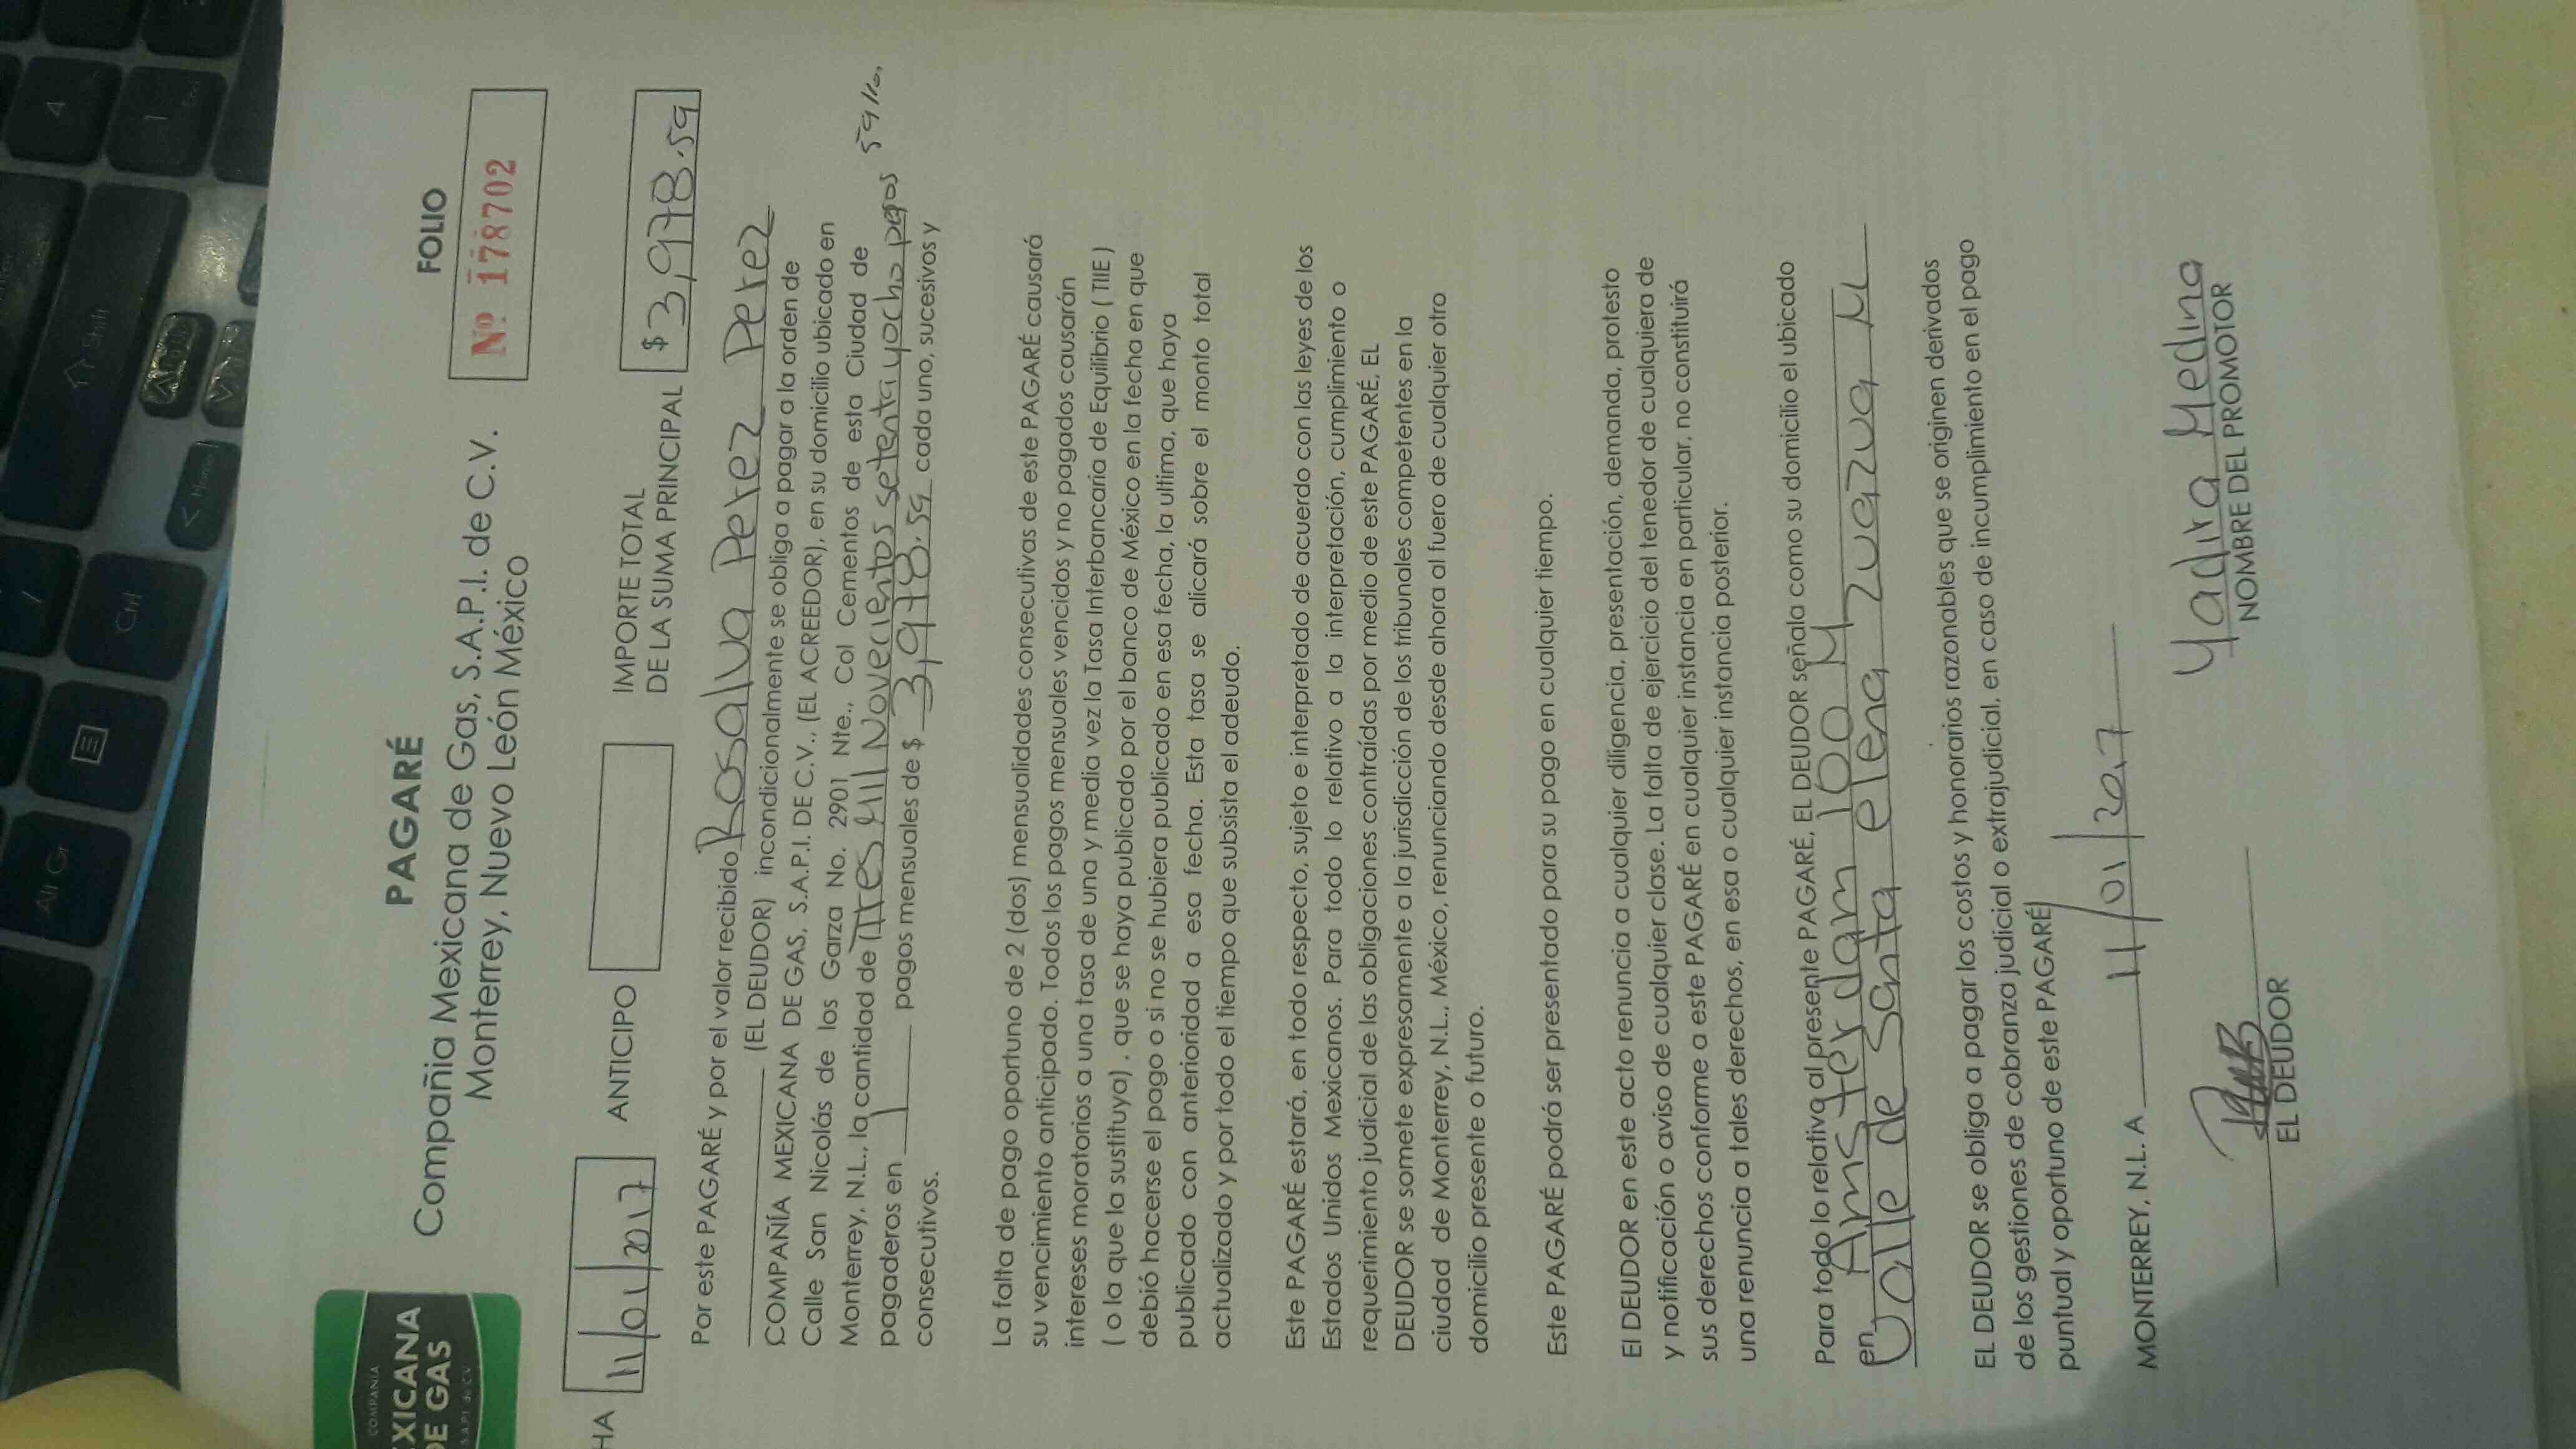 COMPAÑIA
EXICANA
DE GAS
S.A.P.I. de C.V.
PAGARÉ
Compañia Mexicana de Gas, S.A.P.I. de C.V.
Monterrey, Nuevo León México
FOLIO
Nº 178702
HA 11/01/2017 ANTICIPO IMPORTE TOTAL
DE LA SUMA PRINCIPAL $ 3,978.59
Por este PAGARÉ y por el valor recibido Rosalva Perez Perez
(EL DEUDOR) incondicionalmente se obliga a pagar a la orden de
COMPAÑÍA MEXICANA DE GAS, S.A.P.I. DE C.V., (EL ACREEDOR), en su domicilio ubicado en
Calle San Nicolás de los Garza No. 2901 Nte., Col Cementos de esta Ciudad de
Monterrey, N.L., la cantidad de Tres Mil Novecientos setenta y ocho pesos 59/100
pagaderos en 1 pagos mensuales de $ 3,978.59 cada uno, sucesivos y
consecutivos.
La falta de pago oportuno de 2 (dos) mensualidades consecutivas de este PAGARÉ causará
su vencimiento anticipado. Todos los pagos mensuales vencidos y no pagados causarán
intereses moratorios a una tasa de una y media vez la Tasa Interbancaria de Equilibrio ( TIIE )
( o la que la sustituya) , que se haya publicado por el banco de México en la fecha en que
debió hacerse el pago o si no se hubiera publicado en esa fecha, la ultima, que haya
publicado con anterioridad a esa fecha. Esta tasa se alicará sobre el monto total
actualizado y por todo el tiempo que subsista el adeudo.
Este PAGARÉ estará, en todo respecto, sujeto e interpretado de acuerdo con las leyes de los
Estados Unidos Mexicanos. Para todo lo relativo a la interpretación, cumplimiento o
requerimiento judicial de las obligaciones contraídas por medio de este PAGARÉ, EL
DEUDOR se somete expresamente a la jurisdicción de los tribunales competentes en la
ciudad de Monterrey, N.L., México, renunciando desde ahora al fuero de cualquier otro
domicilio presente o futuro.
Este PAGARÉ podrá ser presentado para su pago en cualquier tiempo.
El DEUDOR en este acto renuncia a cualquier diligencia, presentación, demanda, protesto
y notificación o aviso de cualquier clase. La falta de ejercicio del tenedor de cualquiera de
sus derechos conforme a este PAGARÉ en cualquier instancia en particular, no constituirá
una renuncia a tales derechos, en esa o cualquier instancia posterior.
Para todo lo relativo al presente PAGARÉ, EL DEUDOR señala como su domicilio el ubicado
en Amsterdam 100 M
Valle de Santa elena Zuazua M
EL DEUDOR se obliga a pagar los costos y honorarios razonables que se originen derivados
de los gestiones de cobranza judicial o extrajudicial, en caso de incumplimiento en el pago
puntual y oportuno de este PAGARÉ
MONTERREY, N.L. A 11/01/2017
EL DEUDOR
Yadira Medina
NOMBRE DEL PROMOTOR
Alt Gr
Ctrl
Shift
4
1